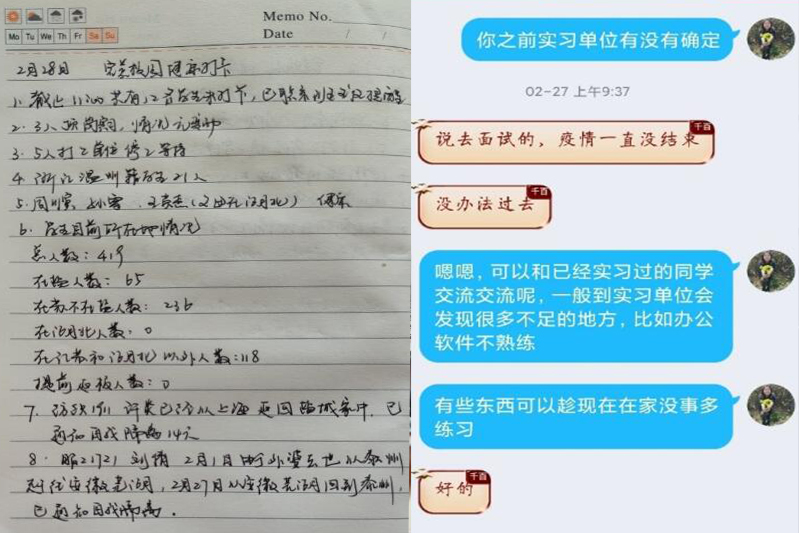 Memo No.
Mo Tu We Th Fr Sa Su
Date / /
2月28日
1. 截止11:00共有12名学生未打卡,已联系班主任提醒
2. 3人顶岗实习,情况
3. 5人打工单位停工等待
4. 浙江温州籍学生21人
5.
6. 学生目前所在地情况
总人数:419
在盐人数:65
在苏不在盐人数:236
在湖北人数:0
在江苏和湖北以外人数:118
提前返校人数:0
7. 许 已经从上海返回盐城家中,已
通知自我隔离14天
8. 服2172 刘倩 2月1日 外婆去世从泰州
赴往安徽芜湖,2月27日从安徽芜湖回到泰州,
已通知自我隔离。
你之前实习单位有没有确定
02-27 上午9:37
千百
说去面试的,疫情一直没结束
千百
没办法过去
嗯嗯,可以和已经实习过的同学
交流交流呢,一般到实习单位会
发现很多不足的地方,比如办公
软件不熟练
有些东西可以趁现在在家没事多
练习
千百
好的